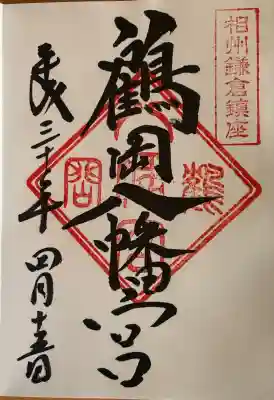 相州鎌倉鎮座
鶴岡八幡宮
平成三十年四月十三日